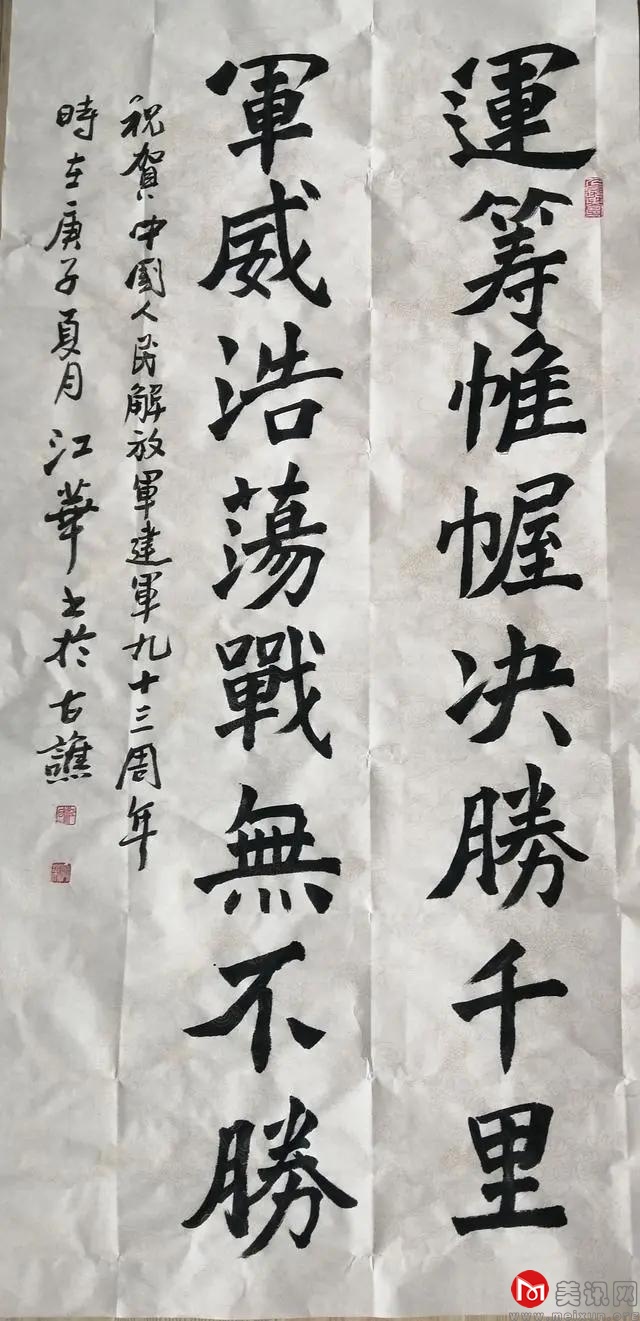 運筹帷幄决勝千里
軍威浩蕩戰無不勝
祝賀中國人民解放軍建軍九十三周年
時在庚子夏月江華书於古譙
美讯网
www.meixun.org